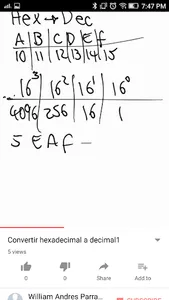 7:47 PM
Hex → Dec
A|B|C|D|E|f
10|11|12|13|14|15
16³|16²|16¹|16⁰
4096|256|16|1
5 E A f —
Convertir hexadecimal a decimal1
5 views
0 0 Share Add to
William Andres Parra...
SUBSCRIBE